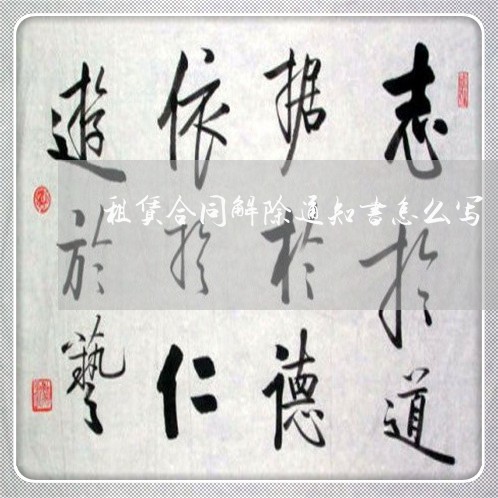 志於道
据於德
依於仁
遊於藝
租赁合同解除通知書怎么写